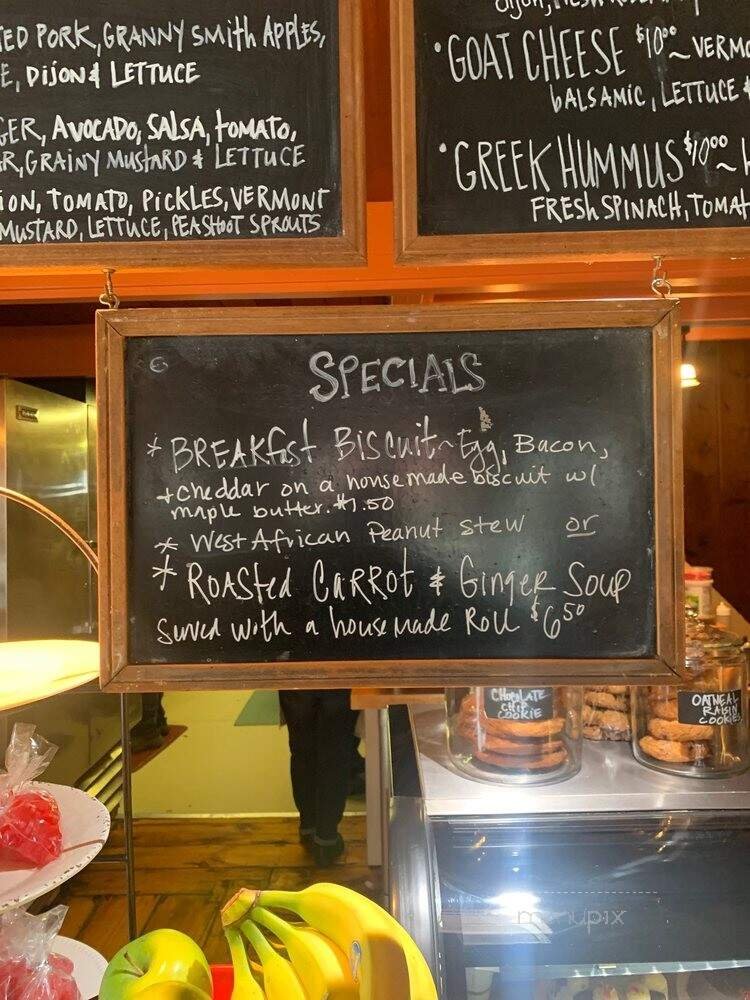 TED PORK, GRANNY SMITH APPLES,
E, DIJON & LETTUCE
GER, AVOCADO, SALSA, TOMATO,
R, GRAINY MUSTARD & LETTUCE
ION, TOMATO, PICKLES, VERMONT
MUSTARD, LETTUCE, PEASHOOT SPROUTS
• GOAT CHEESE $10⁰⁰ ~ VERMO
BALSAMIC, LETTUCE &
• GREEK HUMMUS $10⁰⁰ ~
FRESH SPINACH, TOMAT
SPECIALS
* BREAKfast BISCuit ~ Egg, Bacon,
+ cheddar on a housemade biscuit w/
maple butter. $7.50
* West African Peanut stew or
* ROASted CaRROt & Ginger Soup
Served with a housemade Roll $6⁵⁰
CHOCOLATE
CHIP
COOKIE
OATMEAL
RAISIN
COOKIES
menupix